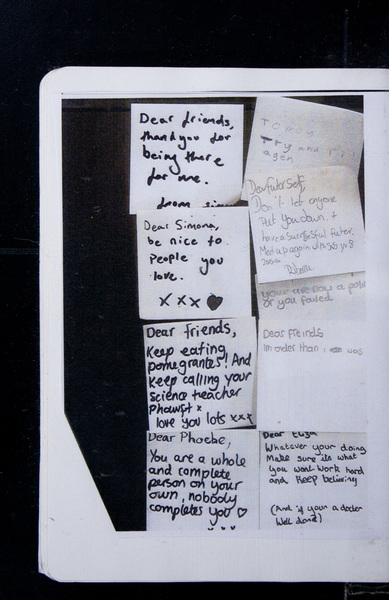 Dear friends,
thank you for
being there
for me.
Dear Simona,
be nice to
people you
love.
x x x
Dear friends,
Keep eating
pomegrantes! And
keep calling your
science teacher
x
love you lots xxx
Dear Phoebe,
You are a whole
and complete
person on your
own, nobody
completes you ♡
Try and
agen
Dear futor Self,
Don't let anyone
Put you down. +
have a successful futer.
Meet up again
your are now a
or you failed
Dear Freinds
Im order than
Dear Eliza
Whatever your doing
Make sure its what
you want work hard
and Keep believing
(And if your a docter
Well done!)